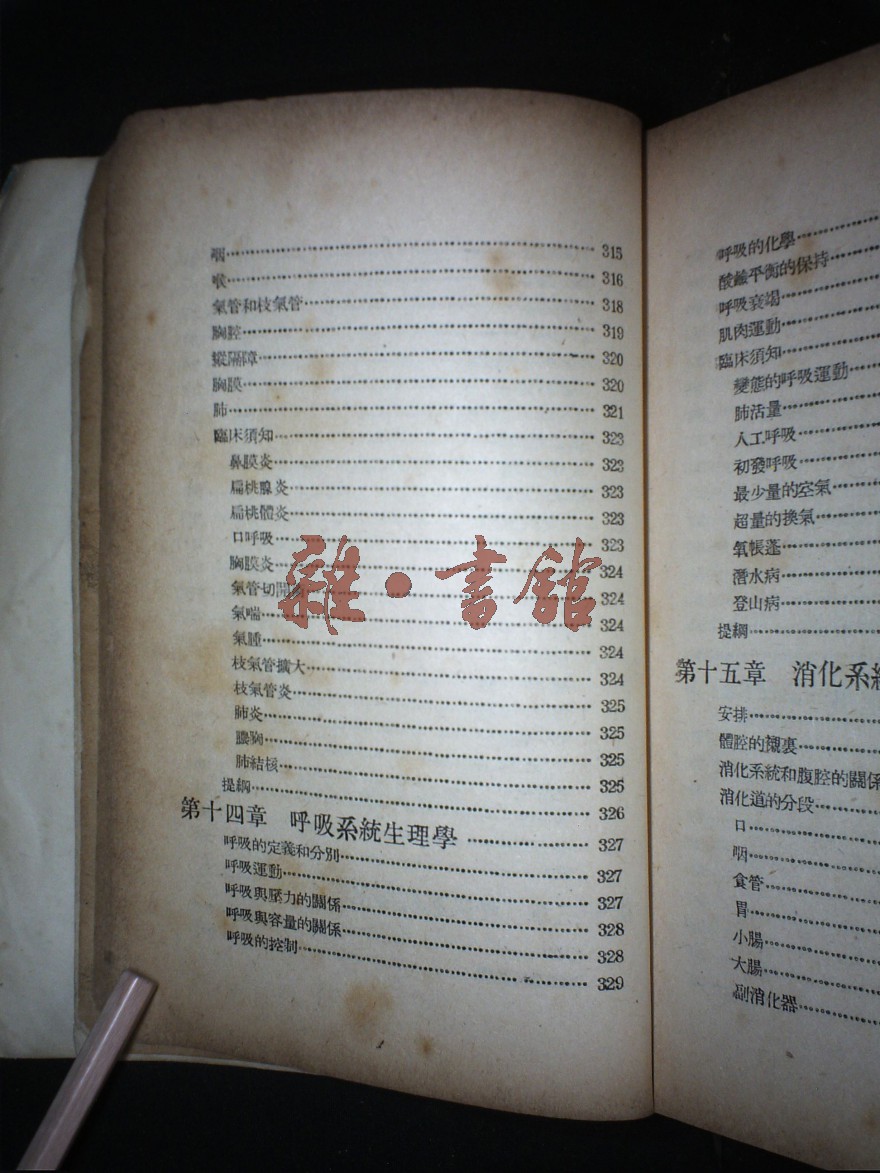 咽 315
喉 316
氣管和枝氣管 318
胸腔 319
縱隔障 320
胸膜 320
肺 321
臨床須知 323
鼻膜炎 323
扁桃腺炎 323
扁桃體炎 323
口呼吸 323
胸膜炎 324
氣管切開 324
氣喘 324
氣腫 324
枝氣管擴大 324
枝氣管炎 325
肺炎 325
膿胸 325
肺結核 325
提綱 326
第十四章 呼吸系統生理學 327
呼吸的定義和分別 327
呼吸運動 327
呼吸與壓力的關係 328
呼吸與容量的關係 328
呼吸的控制 329
雜·書館
呼吸的化學
酸鹼平衡的保持
呼吸衰竭
肌肉運動
臨床須知
變態的呼吸運動
肺活量
人工呼吸
初發呼吸
最少量的空氣
超量的換氣
氧帳蓬
潛水病
登山病
提綱
第十五章 消化系統
安排
體腔的襯裏
消化系統和腹腔的關係
消化道的分段
口
咽
食管
胃
小腸
大腸
副消化器